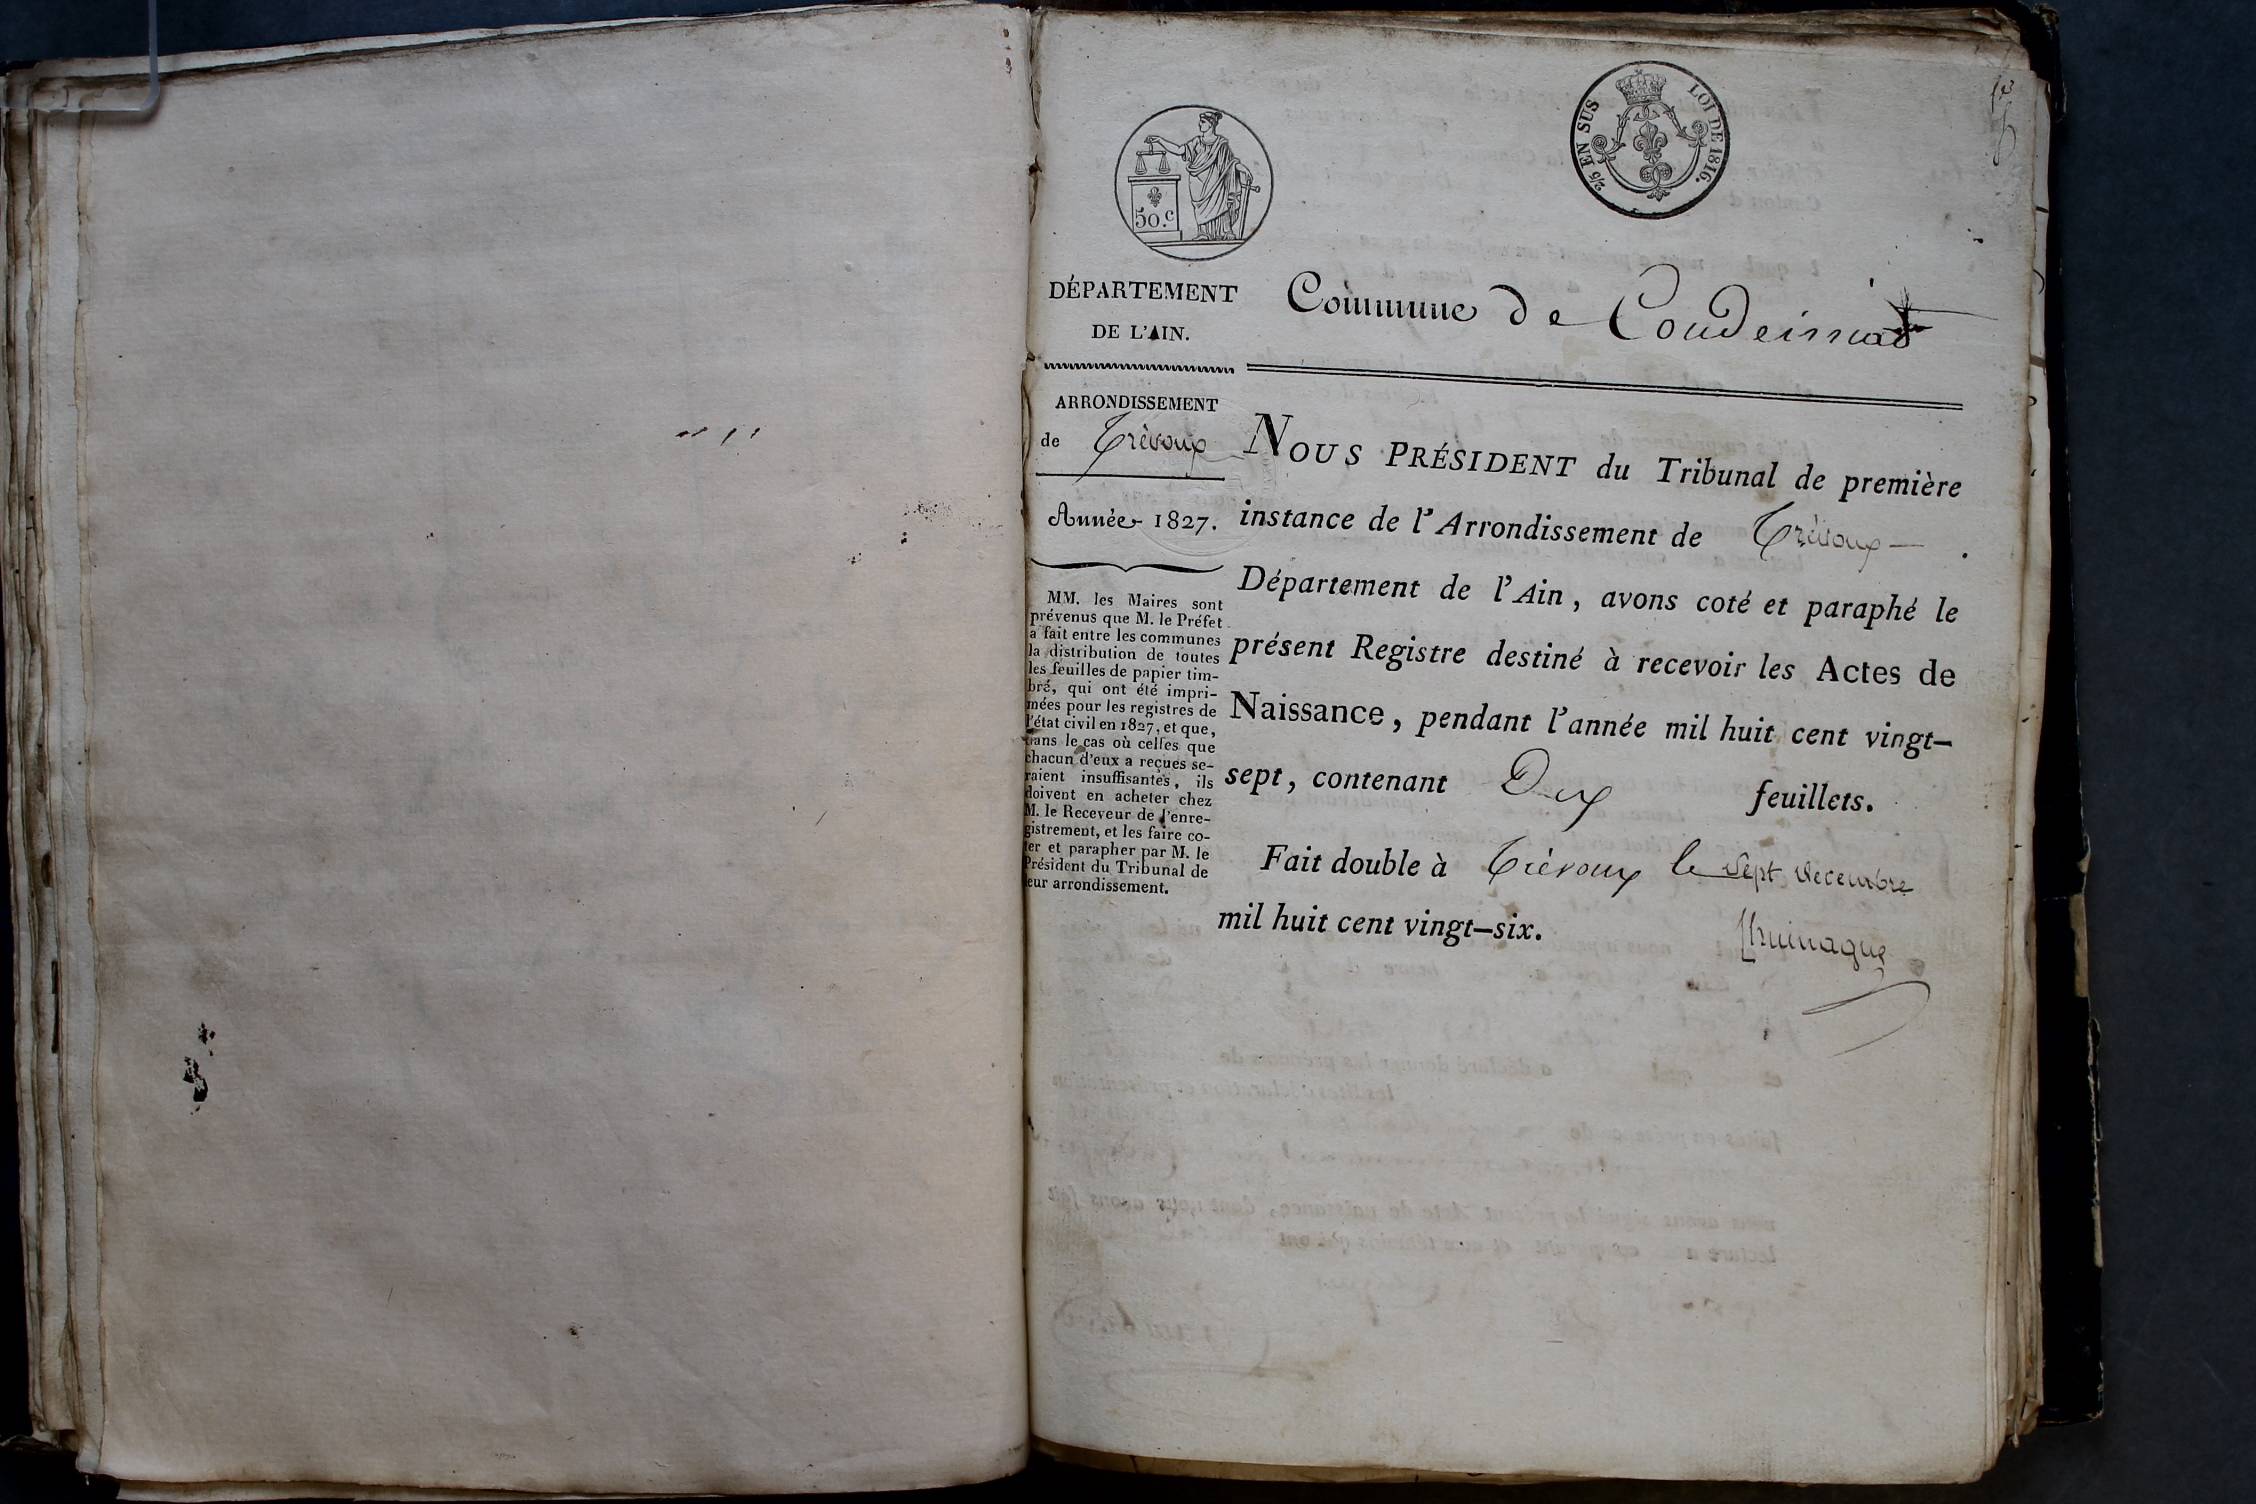 50.c
2/5 EN SUS LOI DE 1816.
DÉPARTEMENT
DE L'AIN.
ARRONDISSEMENT
de Trévoux
Année 1827.
MM. les Maires sont
prévenus que M. le Préfet
a fait entre les communes
la distribution de toutes
les feuilles de papier tim-
bré, qui ont été impri-
mées pour les registres de
l'état civil en 1827, et que,
dans le cas où celles que
chacun d'eux a reçues se-
raient insuffisantes, ils
doivent en acheter chez
M. le Receveur de l'enre-
gistrement, et les faire co-
ter et parapher par M. le
Président du Tribunal de
leur arrondissement.
Commune de Condeissiat
NOUS PRÉSIDENT du Tribunal de première
instance de l'Arrondissement de Trévoux
Département de l'Ain, avons coté et paraphé le
présent Registre destiné à recevoir les Actes de
Naissance, pendant l'année mil huit cent vingt-
sept, contenant Dix feuillets.
Fait double à Trévoux le sept décembre
mil huit cent vingt-six.